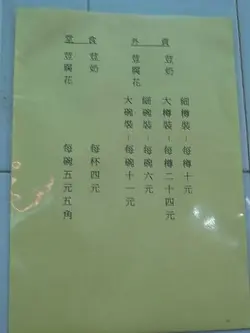 外賣
細樽裝－每樽十元
荳奶
大樽裝－每樽二十四元
細碗裝－每碗六元
荳腐花
大碗裝－每碗十一元
堂食
荳奶 每杯四元
荳腐花 每碗五元五角